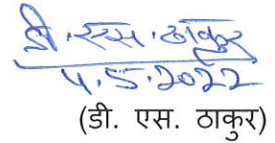 डी. एस. ठाकुर
4.5.2022
(डी. एस. ठाकुर)